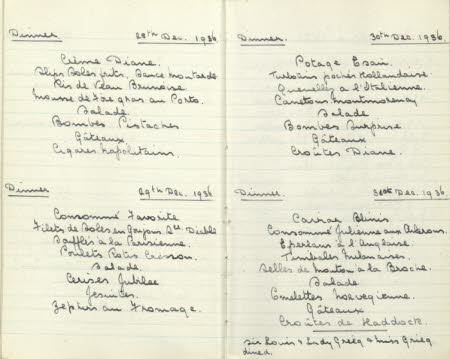 Dinner 28th Dec. 1936.
Crème Diane.
Slips Soles frits. Sauce moutarde
Ris de Veau Brunoise
Mousse de Foie gras au Porto.
Salade
Bombes Pistaches
Gâteaux.
Cigares Napolitains.
Dinner 29th Dec. 1936
Consommé Favorite
Filets de Soles en Goujons Sce Diable
à la Parisienne.
Poulets Rotis Cresson.
Salade.
Cerises Jubilee
Jesuites.
Zephirs au Fromage.
Dinner. 30th Dec. 1936.
Potage
Turbotins pochés Hollandaise.
à l'Italienne.
Canetons Montmorency
Salade
Bombes Surprise
Gâteaux
Croûtes Diane.
Dinner. 31st Dec. 1936.
Caviar Blinis
Consommé Julienne aux Ailerons.
Eperlans à l'Anglaise.
Timbales Milanaises.
Selles de mouton à la Broche.
Salade
Omelettes Norvegienne.
Gâteaux
Croûtes de Haddock.
Sir Louis & Lady Greig & Miss Greig
dined.